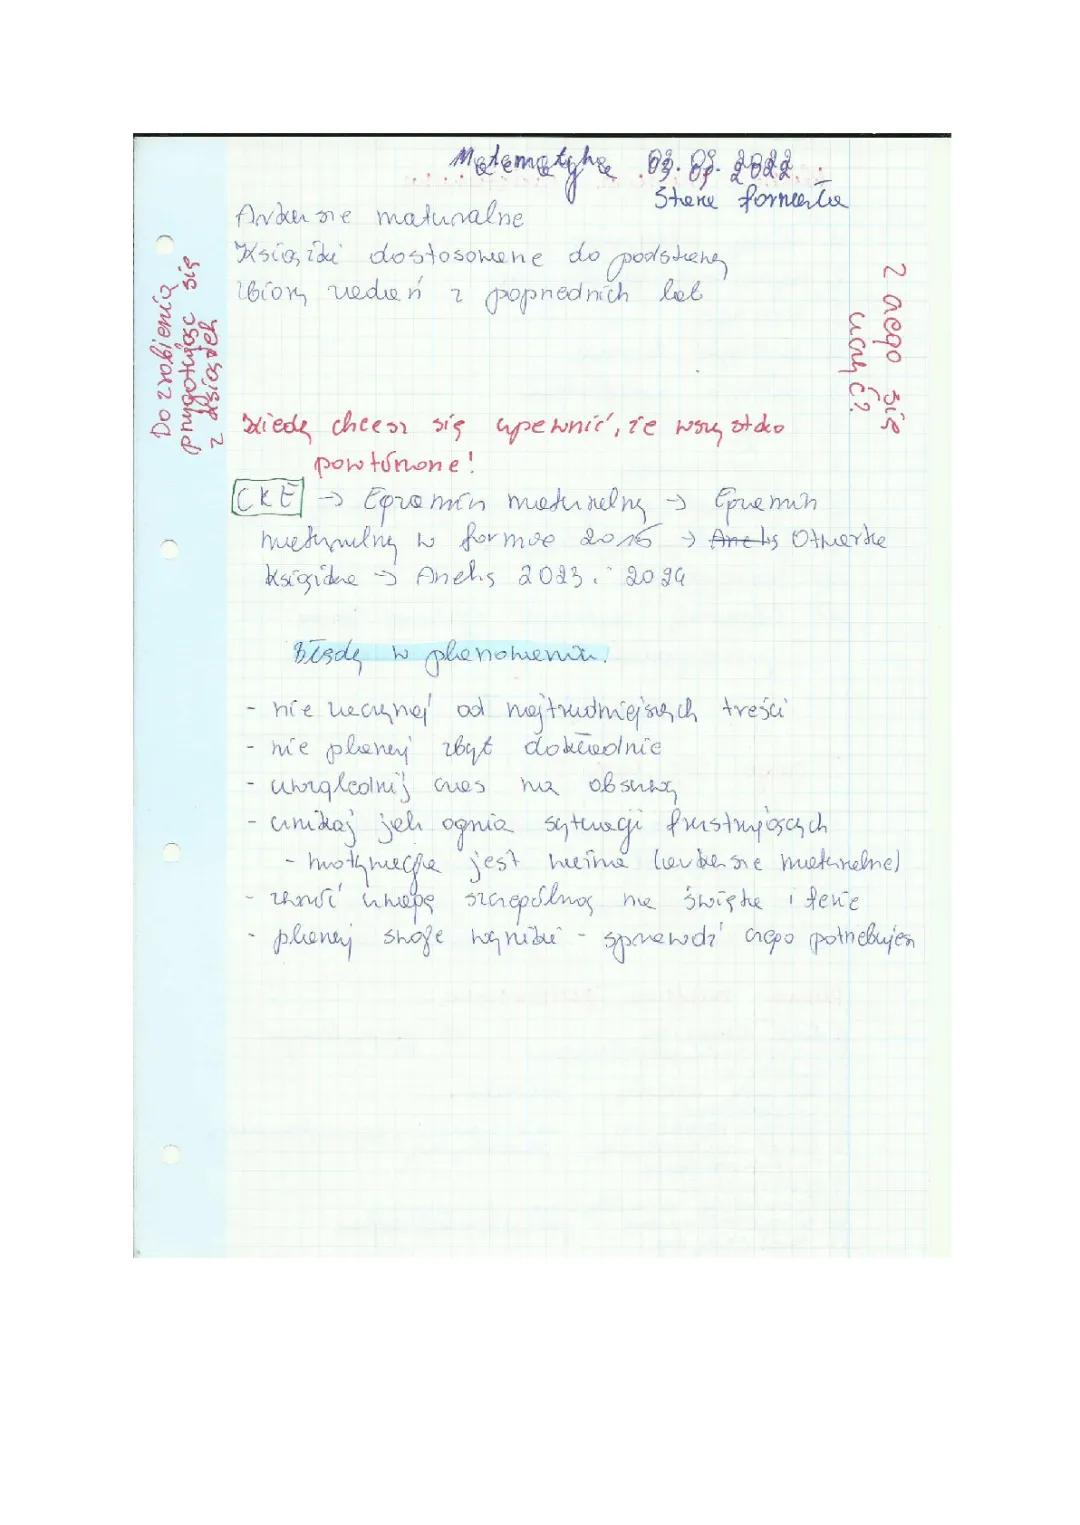 Matematyka 03.09.2022
Stara formuła
Arkusze maturalne
Książki dostosowane do podstawy
zbiory zadań z poprzednich lat
Z czego się
uczyć?
Do zrobienia
przygotować się
z książek
Kiedy chcesz się upewnić, że wszystko
powtórzone!
CKE → Egzamin maturalny → Egzamin
maturalny w formule 2015 → Aneks Otwarte
książka → Aneks 2023 i 2024
Błędy w planowaniu.
- nie zaczynaj od najtrudniejszych treści
- nie planuj zbyt dokładnie
- uwzględnij czas na obsuwy
- unikaj jak ognia sytuacji frustrujących
- motywacja jest ważna (arkusze maturalne)
- zwróć uwagę szczególną na święta i ferie
- planuj swoje wyniki - sprawdź czego potrzebujesz